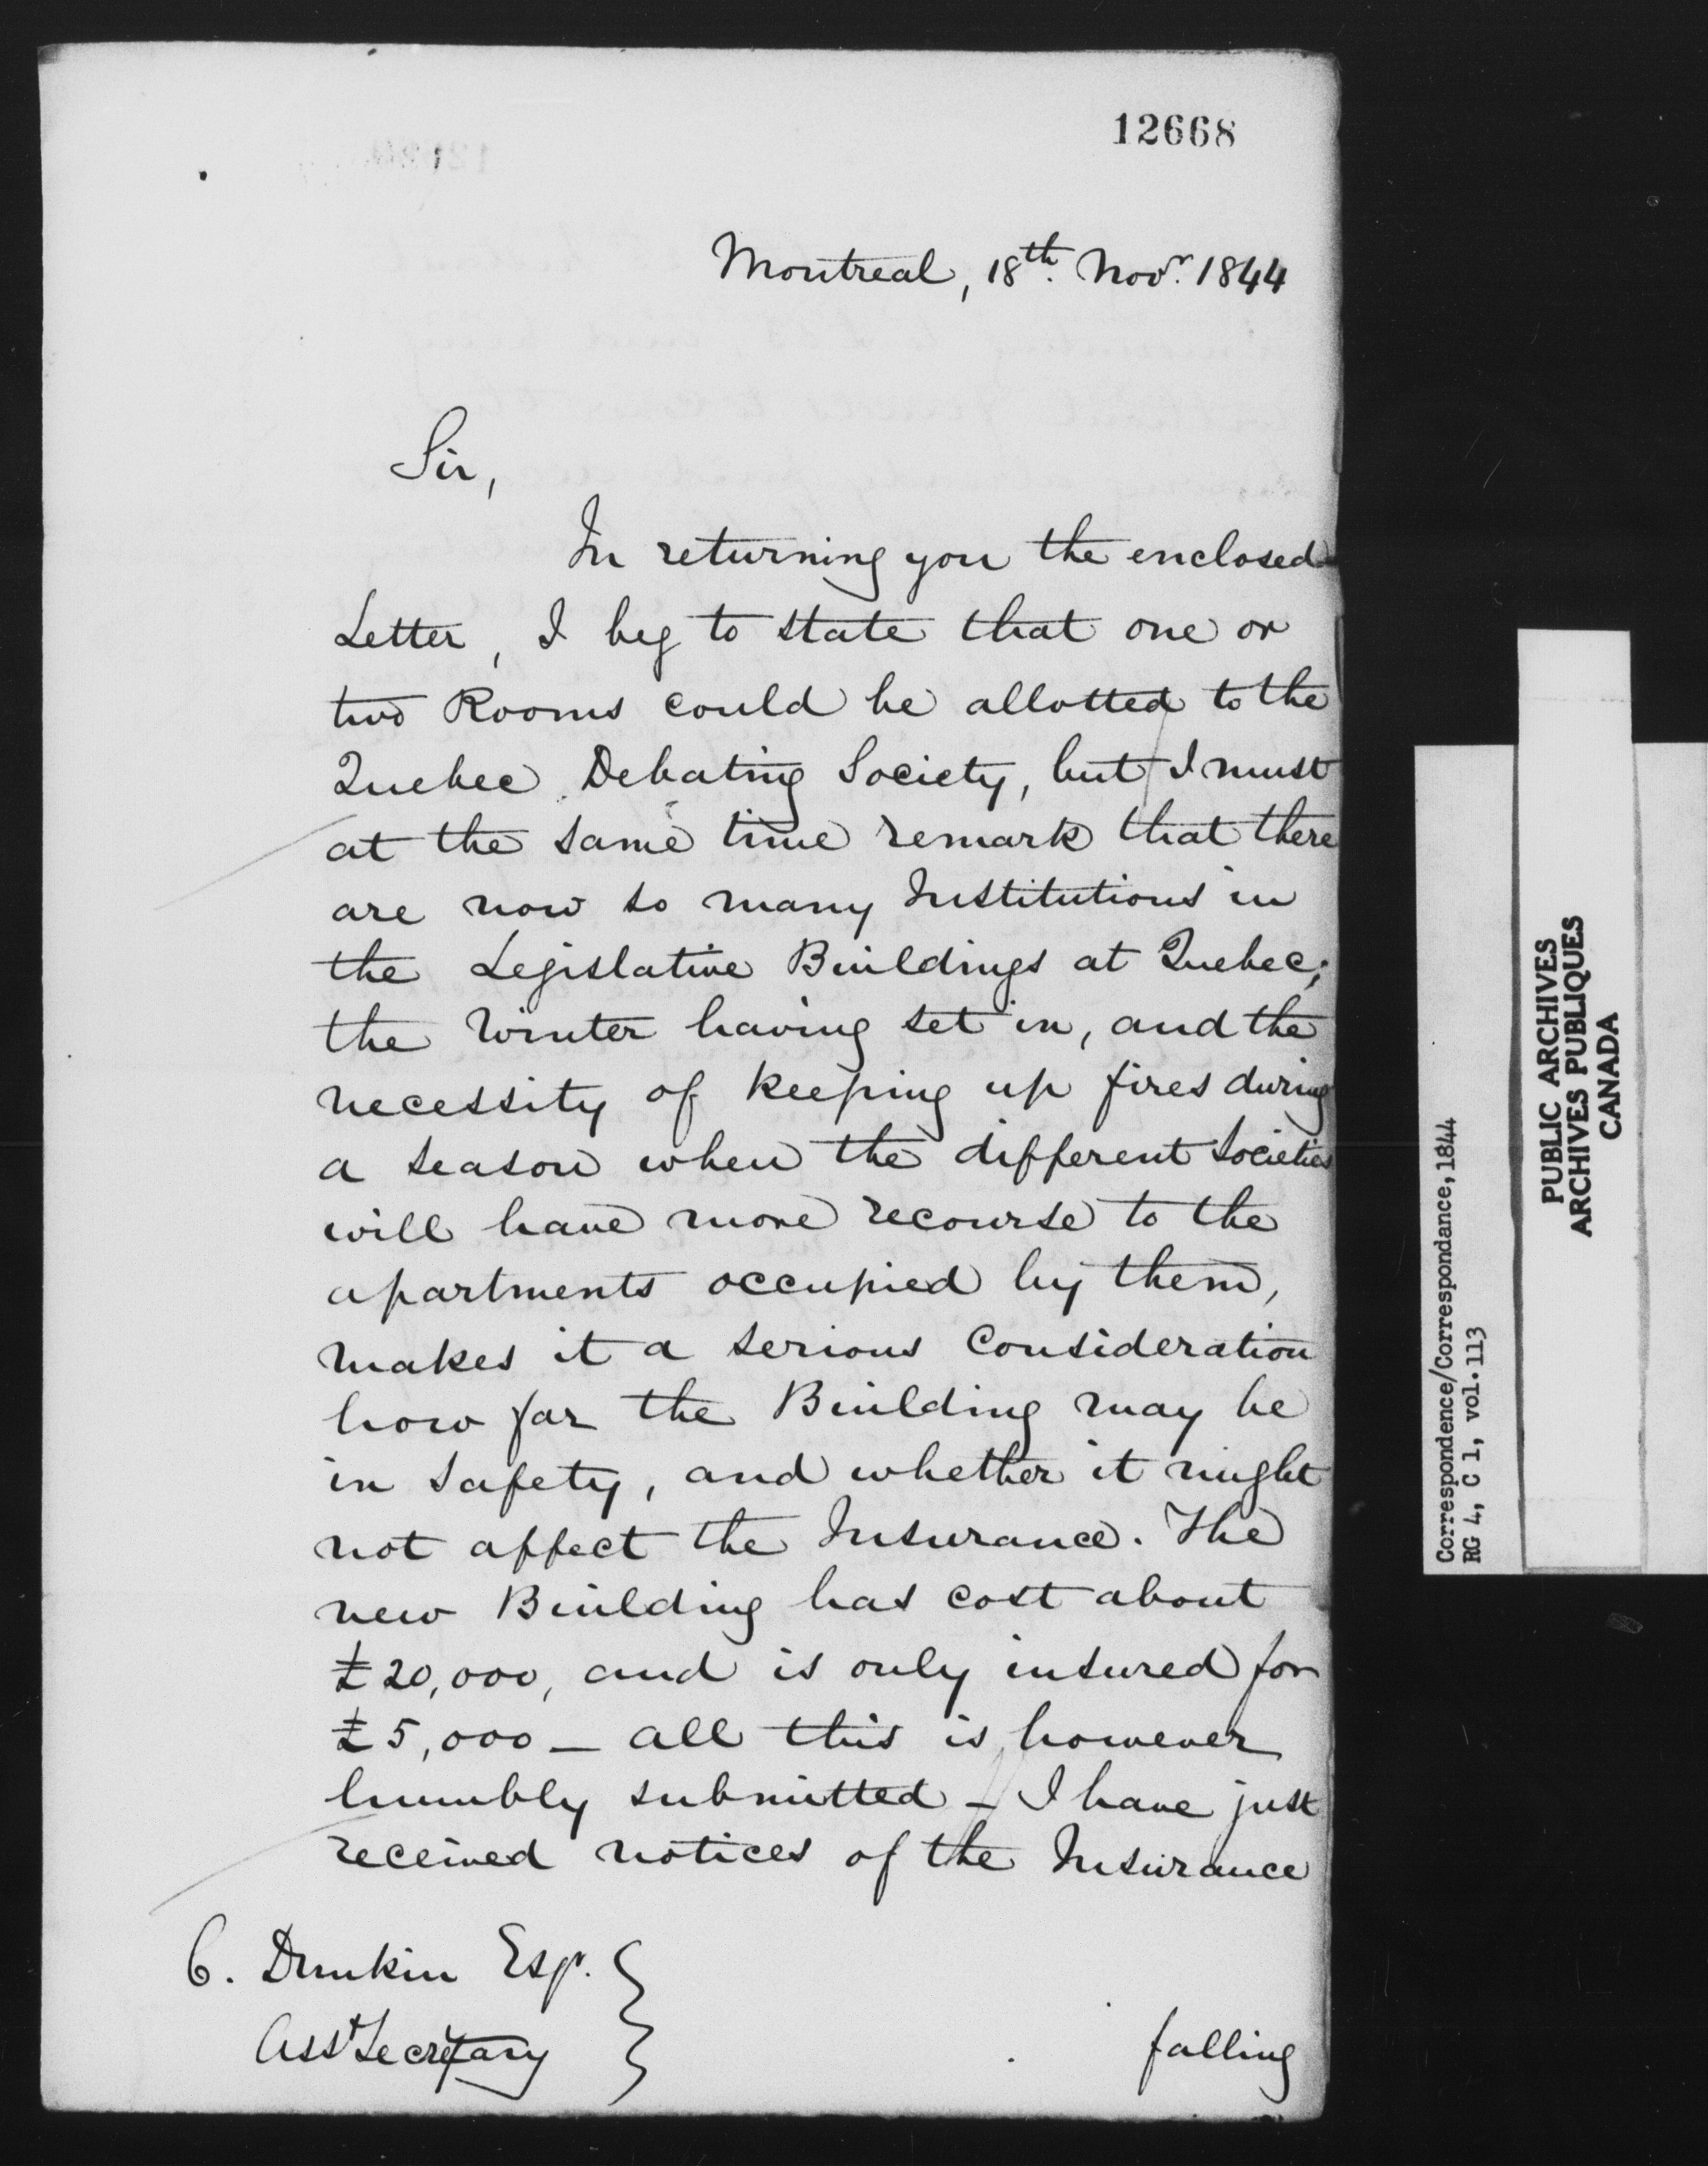 12668
Montreal, 18th. Novr. 1844
Sir,
In returning you the enclosed
Letter, I beg to state that one or
two Rooms could be allotted to the
Quebec Debating Society, but I must
at the same time remark that there
are now so many Institutions in
the Legislative Buildings at Quebec;
the Winter having set in, and the
necessity of keeping up fires during
a season when the different Societies
will have more recourse to the
apartments occupied by them,
makes it a serious Consideration
how far the Building may be
in safety, and whether it might
not affect the Insurance. The
new Building has cost about
£20,000, and is only insured for
£5,000 — all this is however
humbly submitted — I have just
received notices of the Insurance
C. Dunkin Esqr.
Asst Secretary
falling
Correspondence/Correspondance, 1844
RG 4, C 1, vol. 113
PUBLIC ARCHIVES
ARCHIVES PUBLIQUES
CANADA